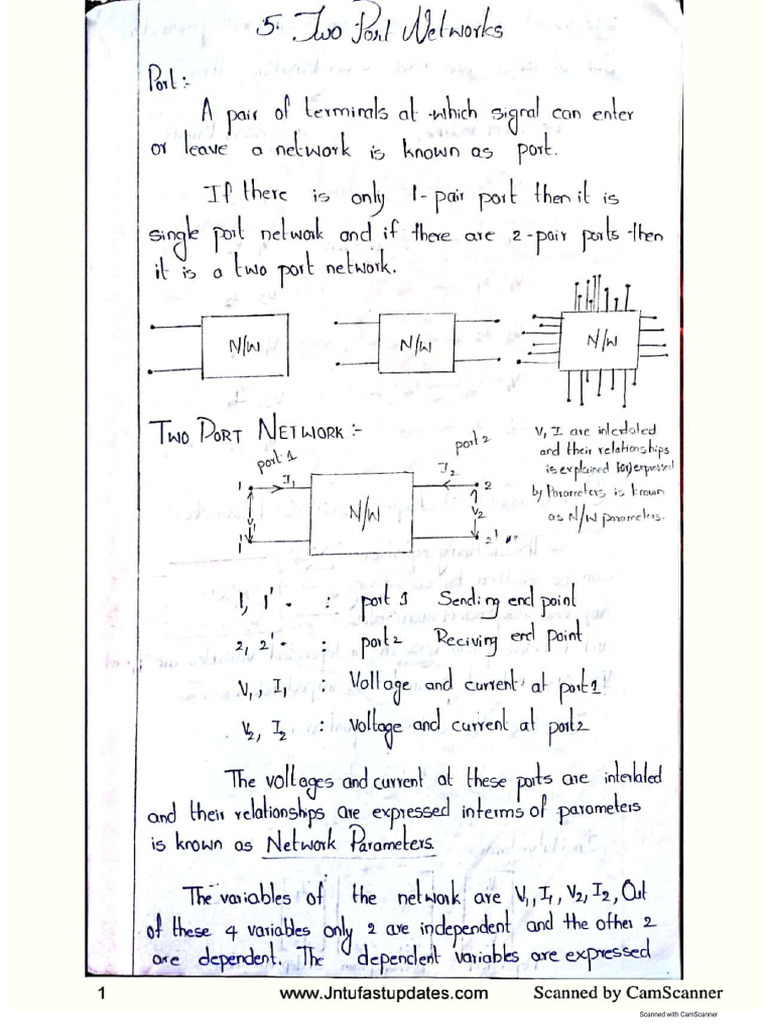 5. Two Port Networks
Port:-
A pair of terminals at which signal can enter
or leave a network is known as port.
If there is only 1-pair port then it is
single port network and if there are 2-pair ports then
it is a two port network.
N/W N/W N/W
TWO PORT NETWORK:-
V, I are interlated
and their relationships
is explained (or) expressed
by parameters is known
as N/W parameters.
port 1 port 2
1 I1 I2 2
V1 N/W V2
1' 2'
1, 1' : port 1 Sending end point
2, 2' : port 2 Reciving end point
V1, I1 : Voltage and current at port 1
V2, I2 : Voltage and current at port 2
The voltages and current at these ports are interlated
and their relationships are expressed interms of parameters
is known as Network Parameters.
The variables of the network are V1, I1, V2, I2, Out
of these 4 variables only 2 are independent and the other 2
are dependent. The dependent variables are expressed
1 www.Jntufastupdates.com Scanned by CamScanner
Scanned with CamScanner